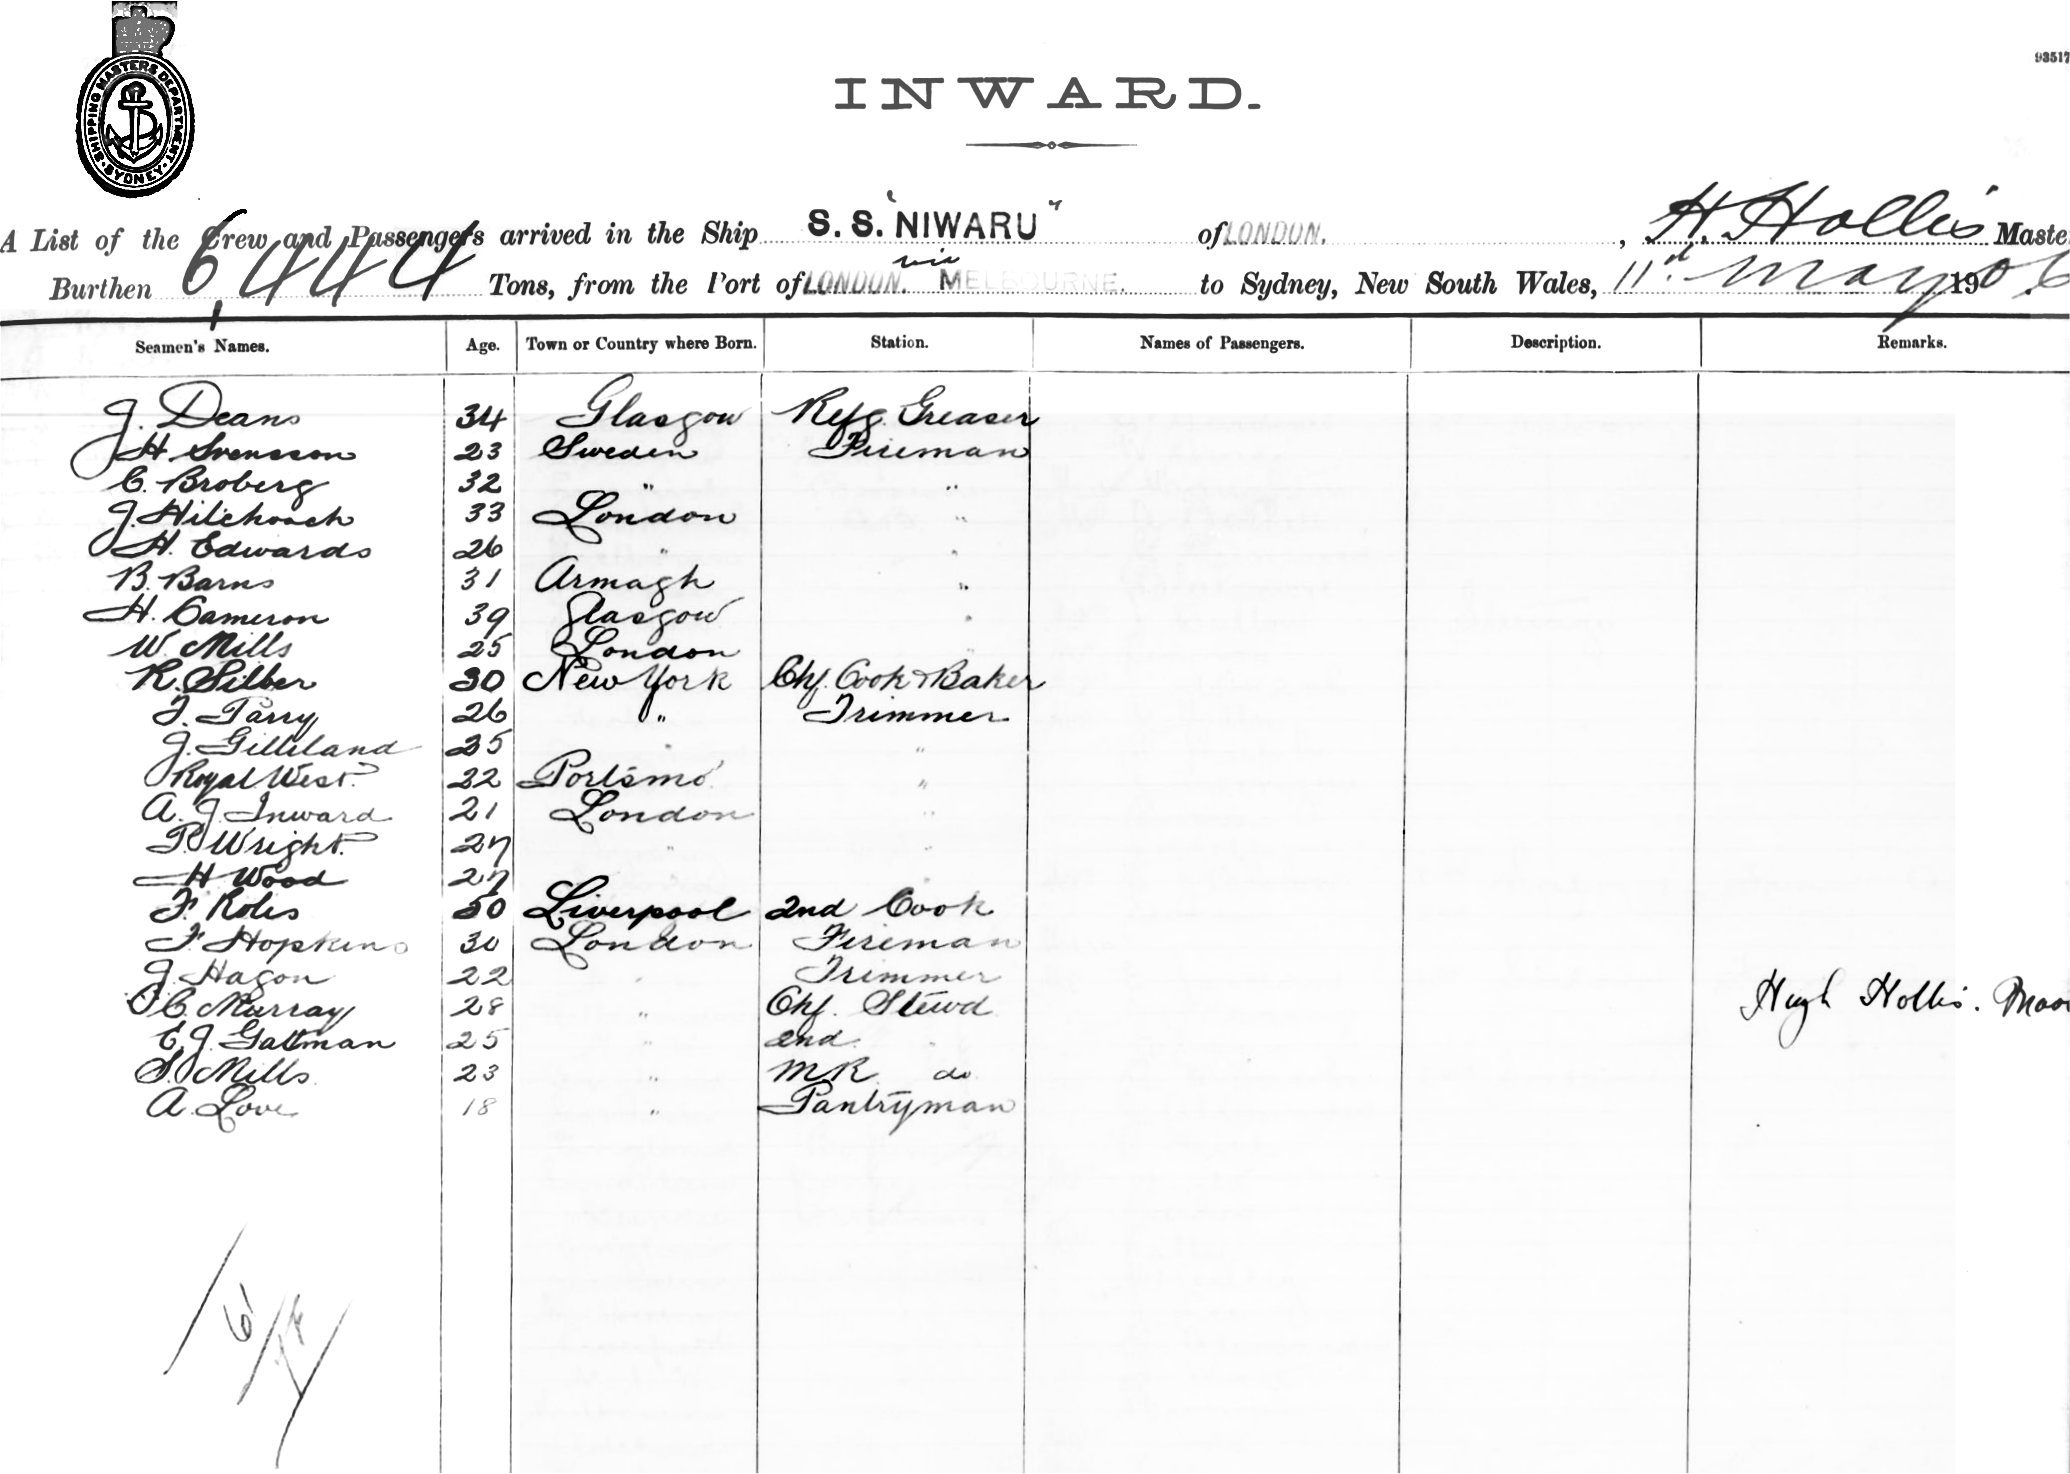 SHIPPING MASTERS DEPARTMENT SYDNEY
93517
INWARD.
A List of the Crew and Passengers arrived in the Ship S. S. "NIWARU" of LONDON, H. Hollis Maste
Burthen 6,444 Tons, from the Port of LONDON. via MELBOURNE. to Sydney, New South Wales, 11th May 1906.
Seamen's Names. Age. Town or Country where Born. Station. Names of Passengers. Description. Remarks.
J. Deans 34 Glasgow Refg Greaser
H. Svensson 23 Sweden Fireman
C. Broberg 32 " "
J. Hilchoach 33 London "
H. Edwards 26 " "
B. Barns 31 Armagh "
H. Cameron 39 Glasgow "
W. Mills 25 London "
R. Silber 30 New York Chf. Cook & Baker
T. Tarry 26 " Trimmer
J. Gilliland 25 " "
Royal West 22 Portsmo "
A. J. Inward 21 London "
P. Wright 27 " "
H Wood 27 " "
F. Roles 50 Liverpool 2nd Cook
F. Hopkins 30 London Fireman
J. Hagon 22 " Trimmer
C. Murray 28 " Chf. Stewd
Hugh Hollis.
E. J. Gattman 25 " 2nd "
S. Mills 23 " M R do
A. Love 18 " Pantryman